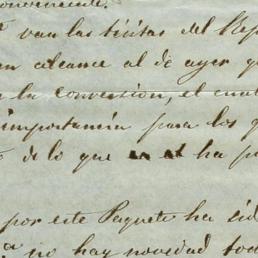 conveniente.
van las listas del Rep
en alcance al de ayer q
la conversion, el cual
importancia para los q
de lo que en el ha pa
por este Paquete ha sid
no hay novedad tod